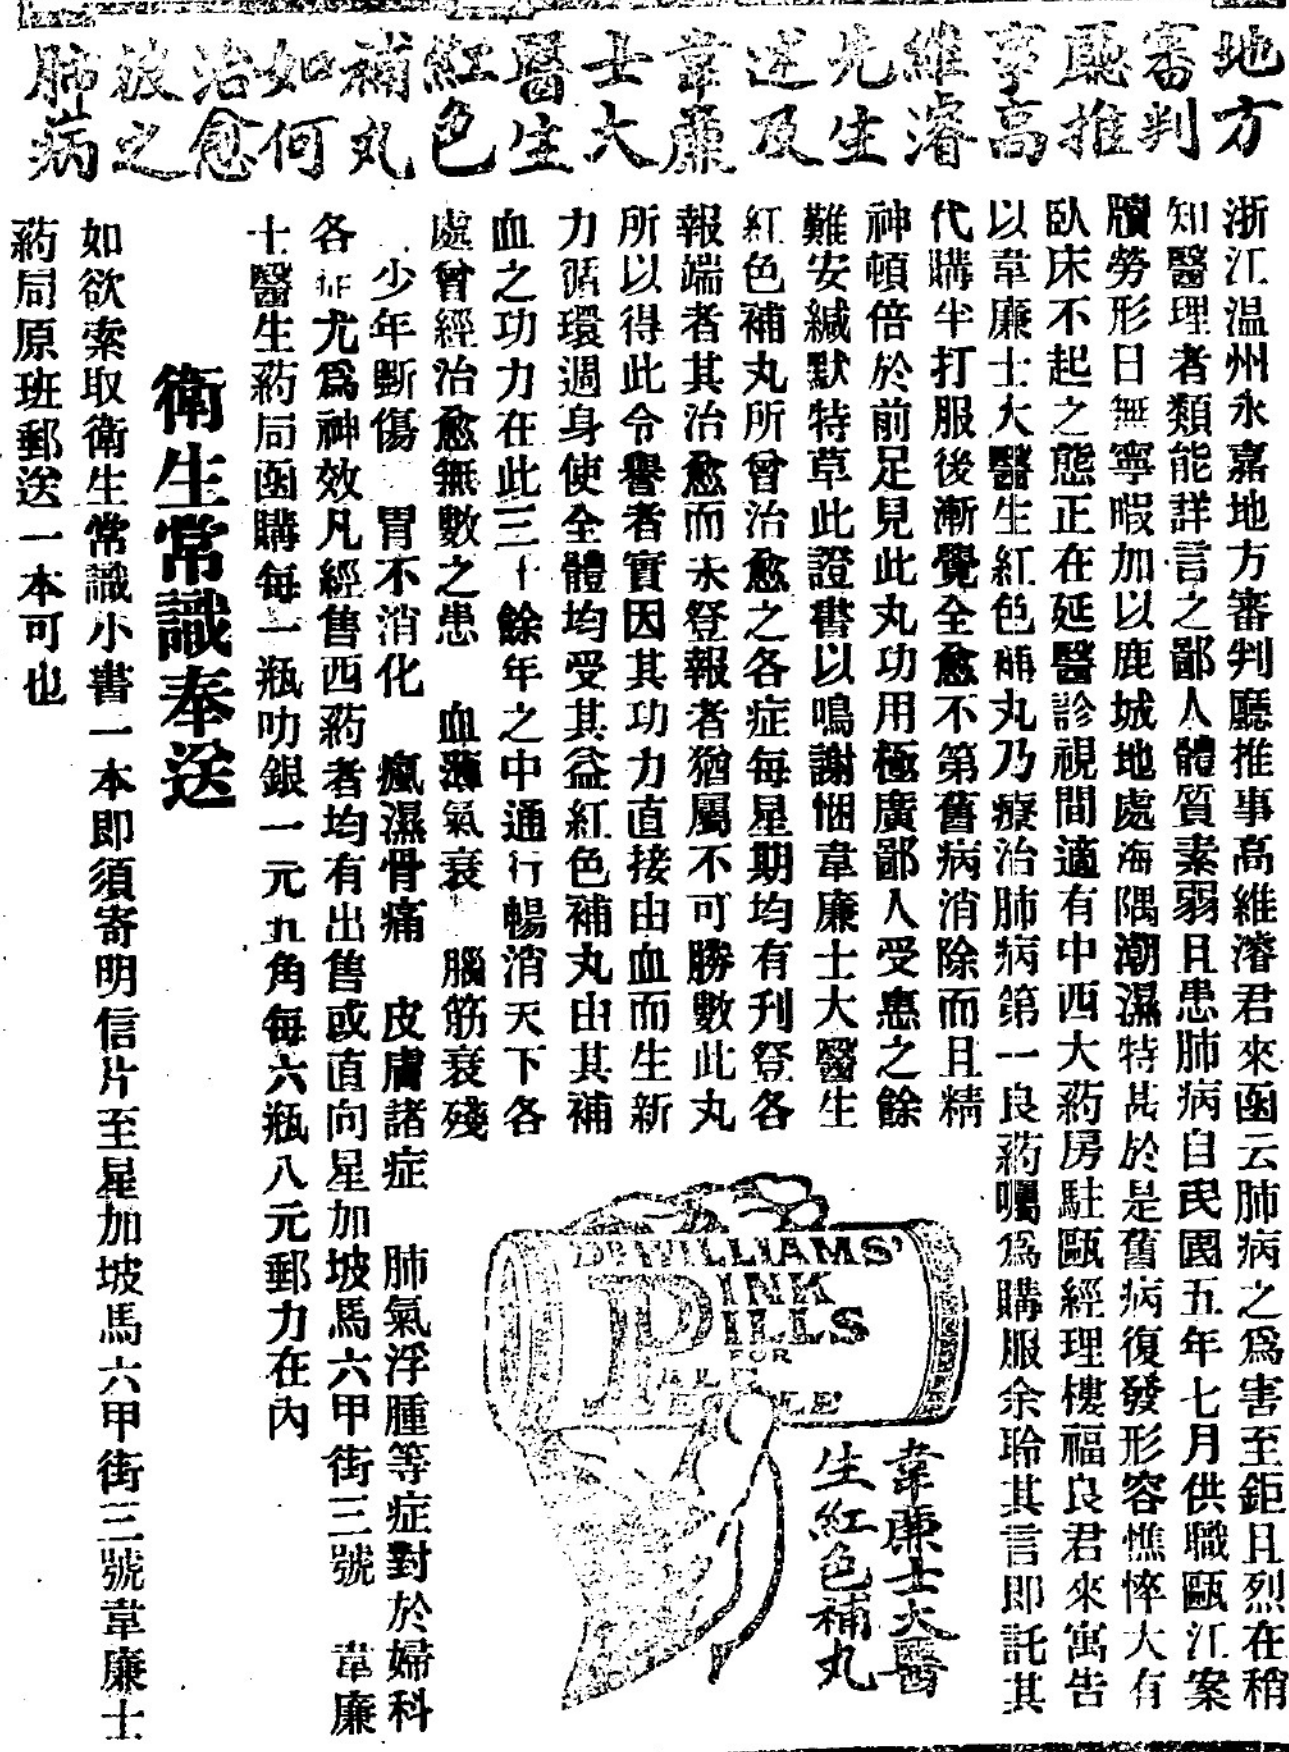 地方
審判
廳推
事高
維濬
先生
述及
韋廉
士大
醫生
紅色
補丸
如何
治愈
彼之
肺病
浙江温州永嘉地方審判廳推事高維濬君來函云肺病之爲害至鉅且烈在稍
知醫理者類能詳言之鄙人體質素弱且患肺病自民國五年七月供職甌江案
牘勞形日無寧暇加以鹿城地處海隅潮濕特甚於是舊病復發形容憔悴大有
臥床不起之態正在延醫診視間適有中西大葯房駐甌經理樓福良君來寓告
以韋廉士大醫生紅色補丸乃療治肺病第一良葯囑爲購服余聆其言即託其
代購半打服後漸覺全愈不第舊病消除而且精
神頓倍於前足見此丸功用極廣鄙人受惠之餘
難安緘默特草此證書以鳴謝悃韋廉士大醫生
紅色補丸所曾治愈之各症每星期均有刋登各
報端者其治愈而未登報者猶屬不可勝數此丸
所以得此令譽者實因其功力直接由血而生新
力循環週身使全體均受其益紅色補丸由其補
血之功力在此三十餘年之中通行暢消天下各
處曾經治愈無數之患 血薄氣衰 腦筋衰殘
少年斷傷 胃不消化 瘋濕骨痛 皮膚諸症 肺氣浮腫等症對於婦科
各症尤爲神效凡經售西葯者均有出售或直向星加坡馬六甲街三號 韋廉
士醫生葯局函購每一瓶叻銀一元九角每六瓶八元郵力在內
DR WILLIAMS'
PINK
PILLS
FOR
PALE
PEOPLE
韋廉士大醫
生紅色補丸
衛生常識奉送
如欲索取衛生常識小書一本即須寄明信片至星加坡馬六甲街三號韋廉士
葯局原班郵送一本可也